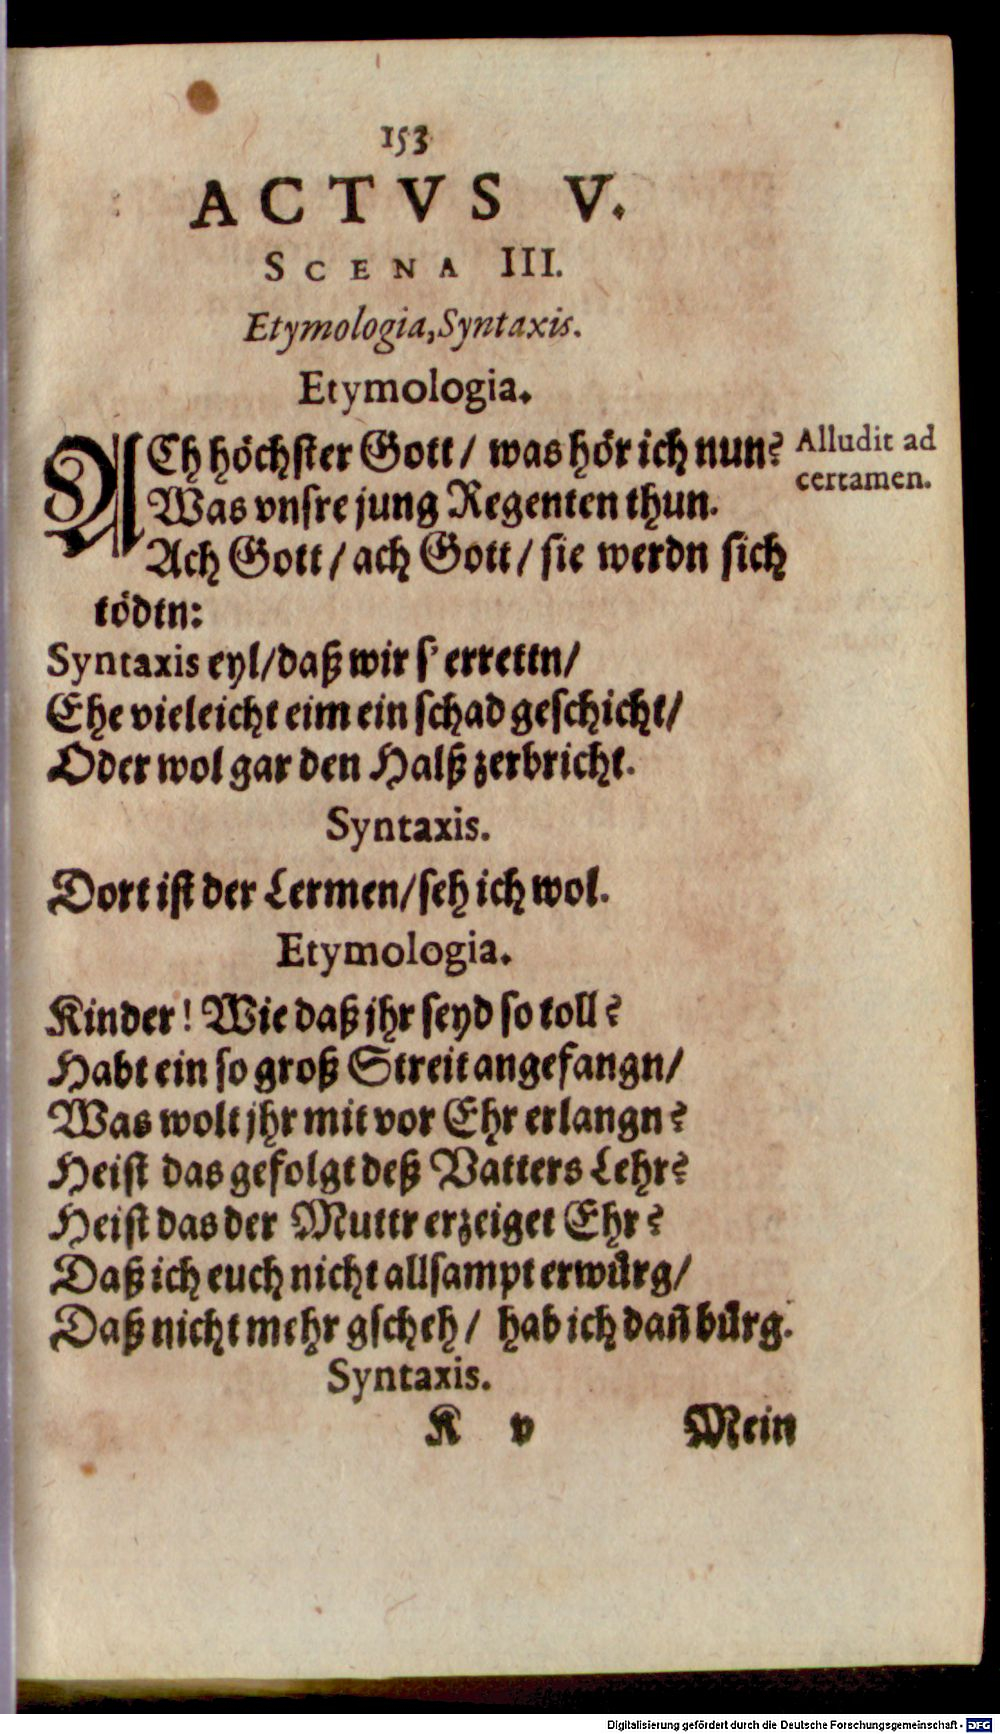 153
ACTVS V.
SCENA III.
Etymologia, Syntaxis.
Etymologia.
ACh höchster Gott / was hör ich nun?
Alludit ad
certamen.
Was vnsre jung Regenten thun.
Ach Gott / ach Gott / sie werdn sich
tödtn:
Syntaxis eyl / daß wir s' errettn /
Ehe vieleicht eim ein schad geschicht /
Oder wol gar den Halß zerbricht.
Syntaxis.
Dort ist der Lermen / seh ich wol.
Etymologia.
Kinder! Wie daß jhr seyd so toll?
Habt ein so groß Streit angefangn /
Was wolt jhr mit vor Ehr erlangn?
Heist das gefolgt deß Vatters Lehr?
Heist das der Muttr erzeiget Ehr?
Daß ich euch nicht allsampt erwürg /
Daß nicht mehr gscheh / hab ich dañ bürg.
Syntaxis.
K v Mein
Digitalisierung gefördert durch die Deutsche Forschungsgemeinschaft - DFG